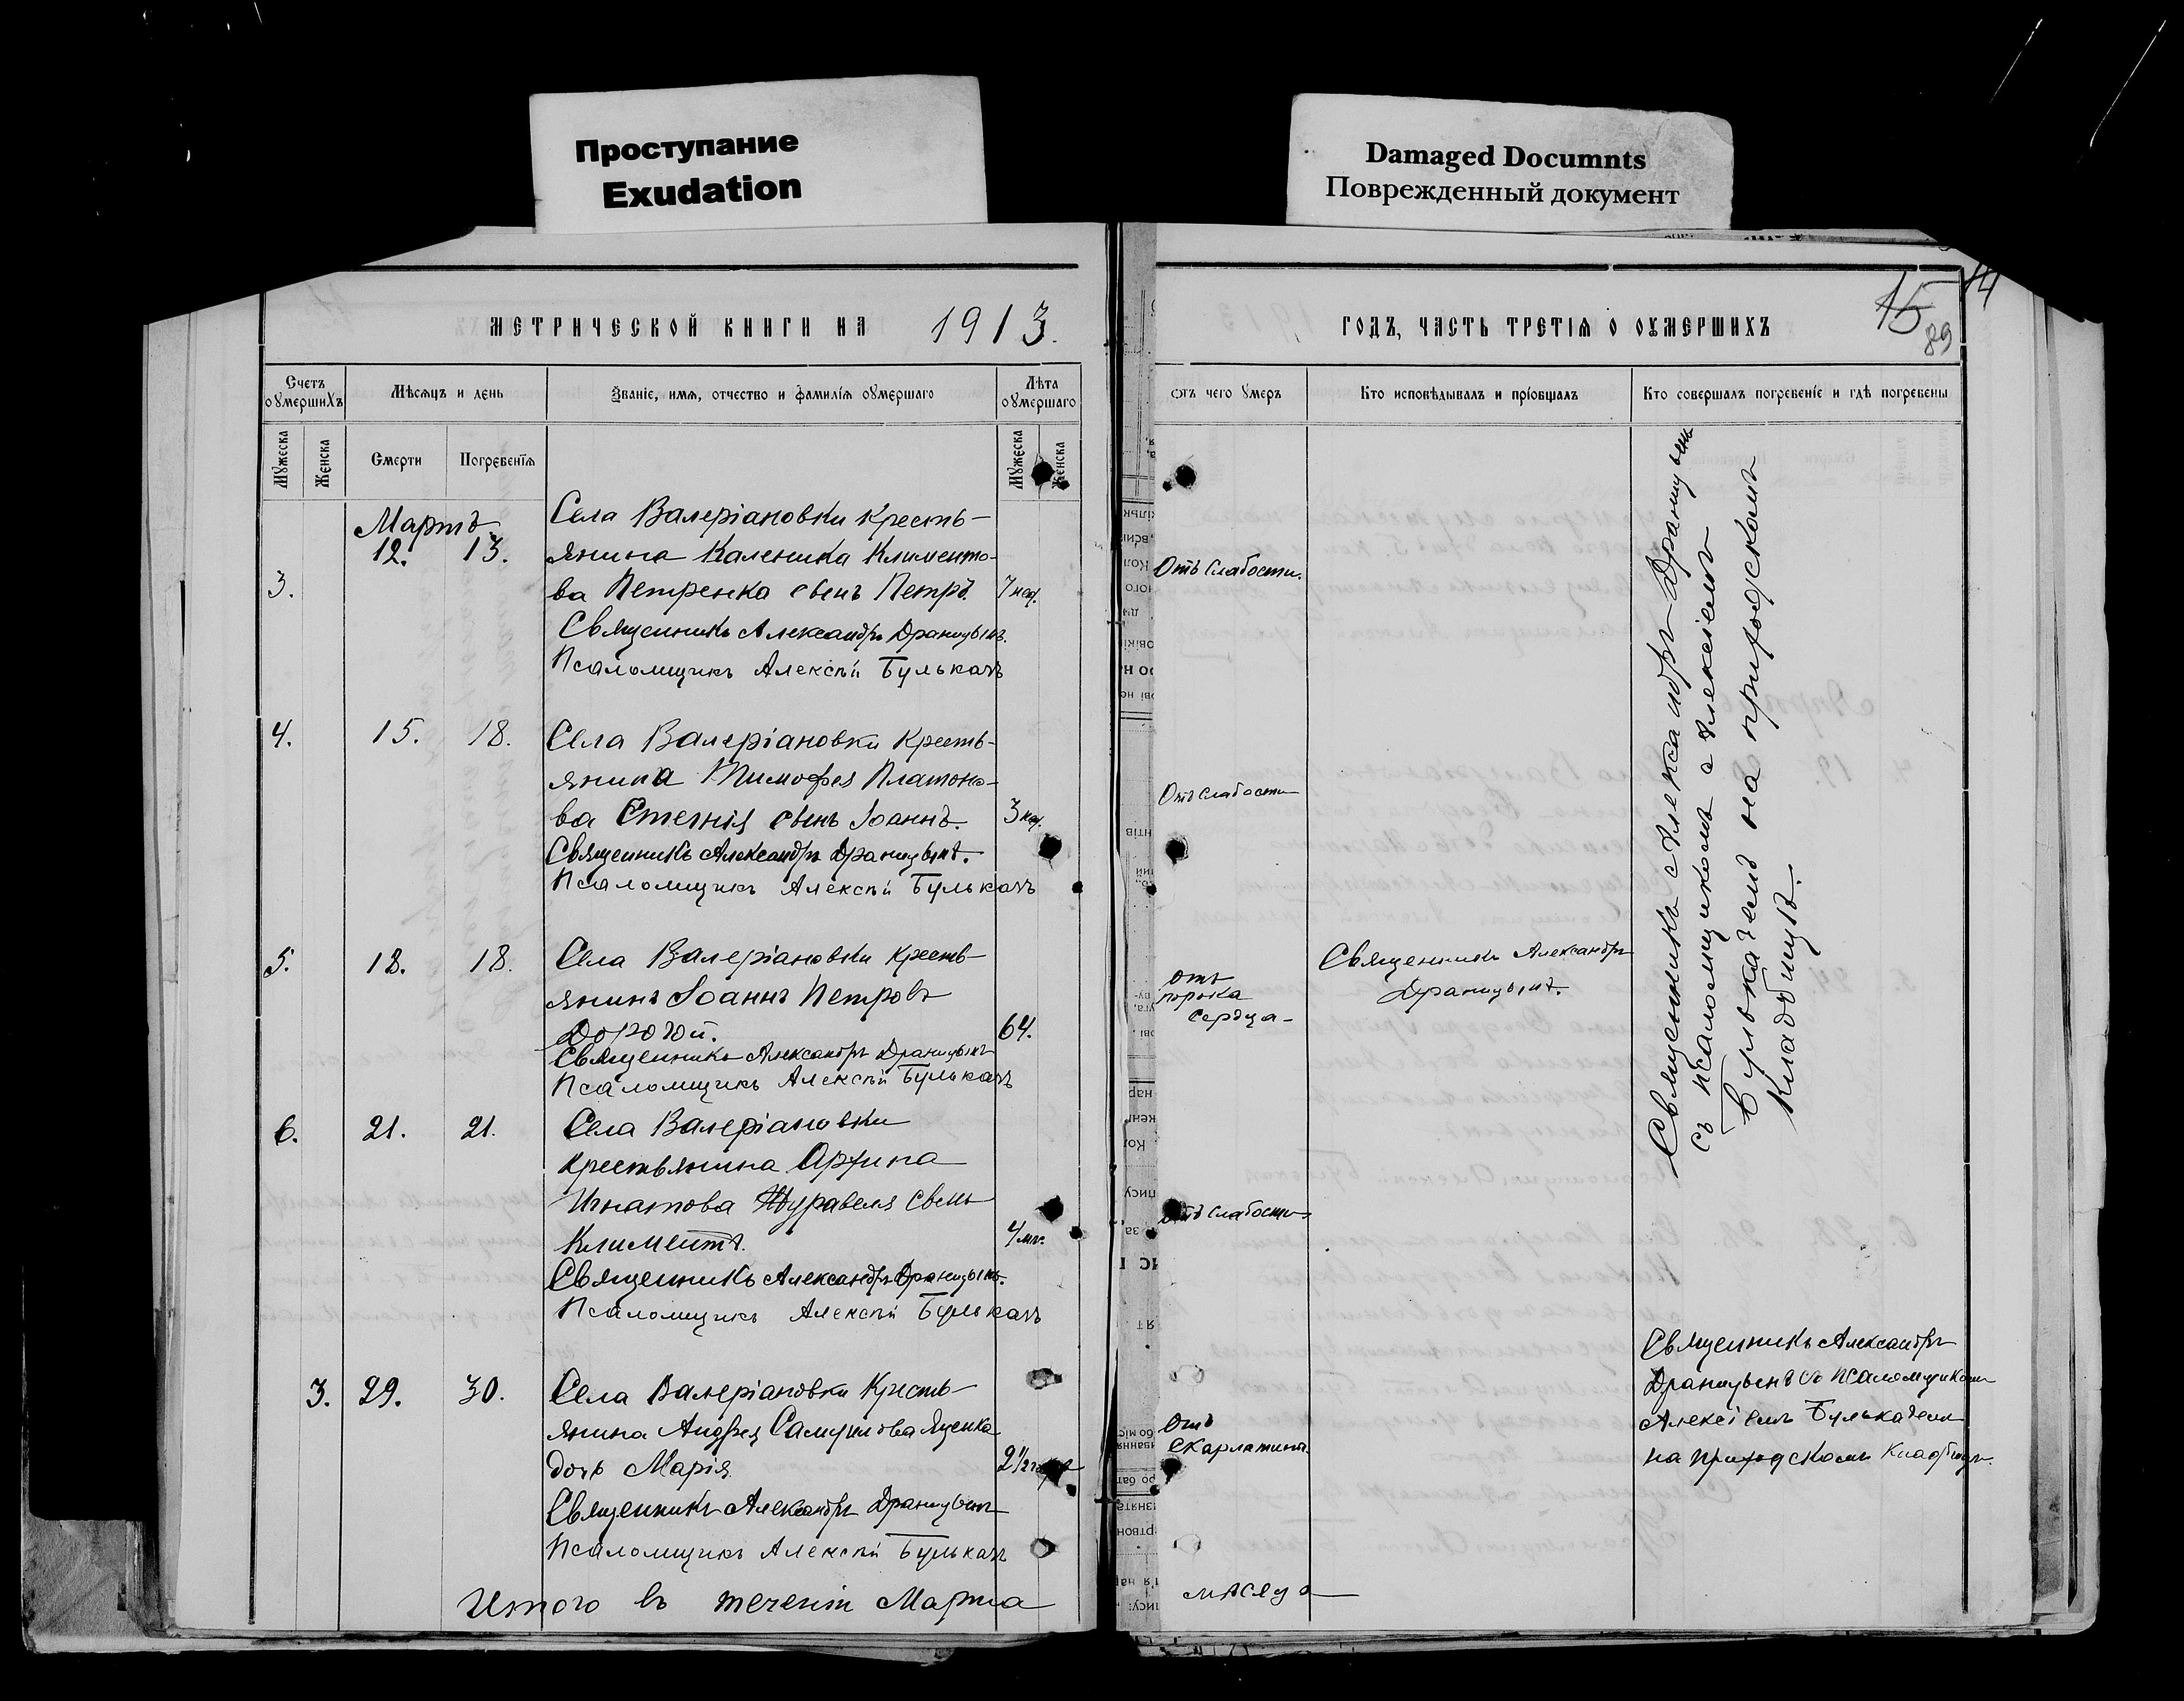 Проступание
Exudation
Damaged Documnts
Поврежденный документ
МЕТРИЧЕСКОЙ КНИГИ НА 1913.
Счетъ оумершихъ
Мѣсяцъ и день
Званіе, имя, отчество и фамилія оумершаго
Лѣта оумершаго
Мужеска
Женска
Смерти
Погребенія
Мужеска
Женска
Мартъ
3. 12. 13.
Села Валеріановки кресть-
янина Каленика Клименто-
ва Петренка сынъ Петръ. 7 нед.
Священникъ Александръ Драницынъ.
Псаломщикъ Алексѣй Булькачъ
4. 15. 18.
Села Валеріановки кресть-
янина Тимофея Платоно-
ва Стегнія сынъ Іоаннъ. 3 нед.
Священникъ Александръ Драницынъ.
Псаломщикъ Алексѣй Булькачъ
5. 18. 18.
Села Валеріановки кресть-
янинъ Іоаннъ Петровъ
Дорогой. 64.
Священникъ Александръ Драницынъ
Псаломщикъ Алексѣй Булькачъ
6. 21. 21.
Села Валеріановки
крестьянина
Игнатова Журавеля сынъ
Климентъ. 4 мѣс.
Священникъ Александръ Драницынъ.
Псаломщикъ Алексѣй Булькачъ
3. 29. 30.
Села Валеріановки кресть-
янина Андрея Самуилова Яценка
дочь Марія 2½
Священникъ Александръ Драницынъ
Псаломщикъ Алексѣй Булькачъ
Итого въ теченіи Марта
ГОДЪ, ЧАСТЬ ТРЕТІЯ О ОУМЕРШИХЪ
15
14
89
отъ чего умеръ
Кто исповѣдывалъ и пріобщалъ
Кто совершалъ погребеніе и гдѣ погребены
Отъ слабости.
Отъ слабости
отъ
порока
сердца
Священникъ Александръ
Драницынъ.
Отъ слабости
Священникъ Александръ Драницынъ
съ псаломщикомъ Алексіемъ
Булькачемъ на приходскомъ
кладбищѣ.
Отъ
скарлатины
Священникъ Александръ
Драницынъ съ псаломщикомъ
Алексіемъ Булькачемъ
на приходскомъ кладбищѣ.
мѣсяца